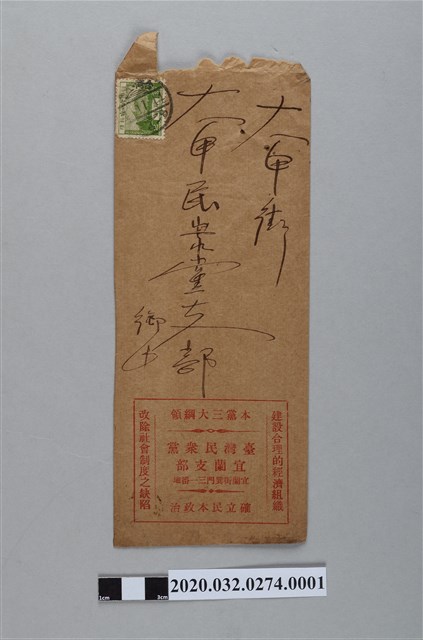 大甲街
大甲民衆黨支部
御中
建設合理的經濟組織
本黨三大綱領
臺灣民衆黨
宜蘭支部
確立民本政治
改除社會制度之缺陷
1cm
3cm
2020.032.0274.0001